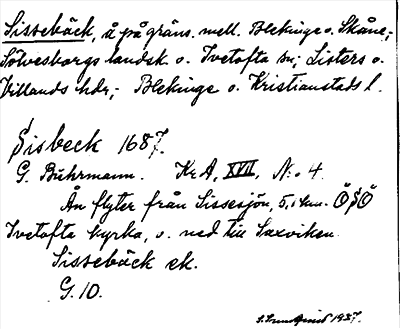 Sissebäck, å på gräns. mell. Blekinge o. Skåne;
Sölvesborgs landsk. o. Ivetofta sn; Listers o.
Villands hdr; Blekinge o. Kristianstads l.
Sisbeck 1687.
G. Buhrmann. Kr A, XVII, N:o 4.
Ån flyter från Sissesjön, 5,1 km. ÖSÖ
Ivetofta kyrka, o. ned till Saxviken.
Sissebäck ek.
G. 10.
1937.